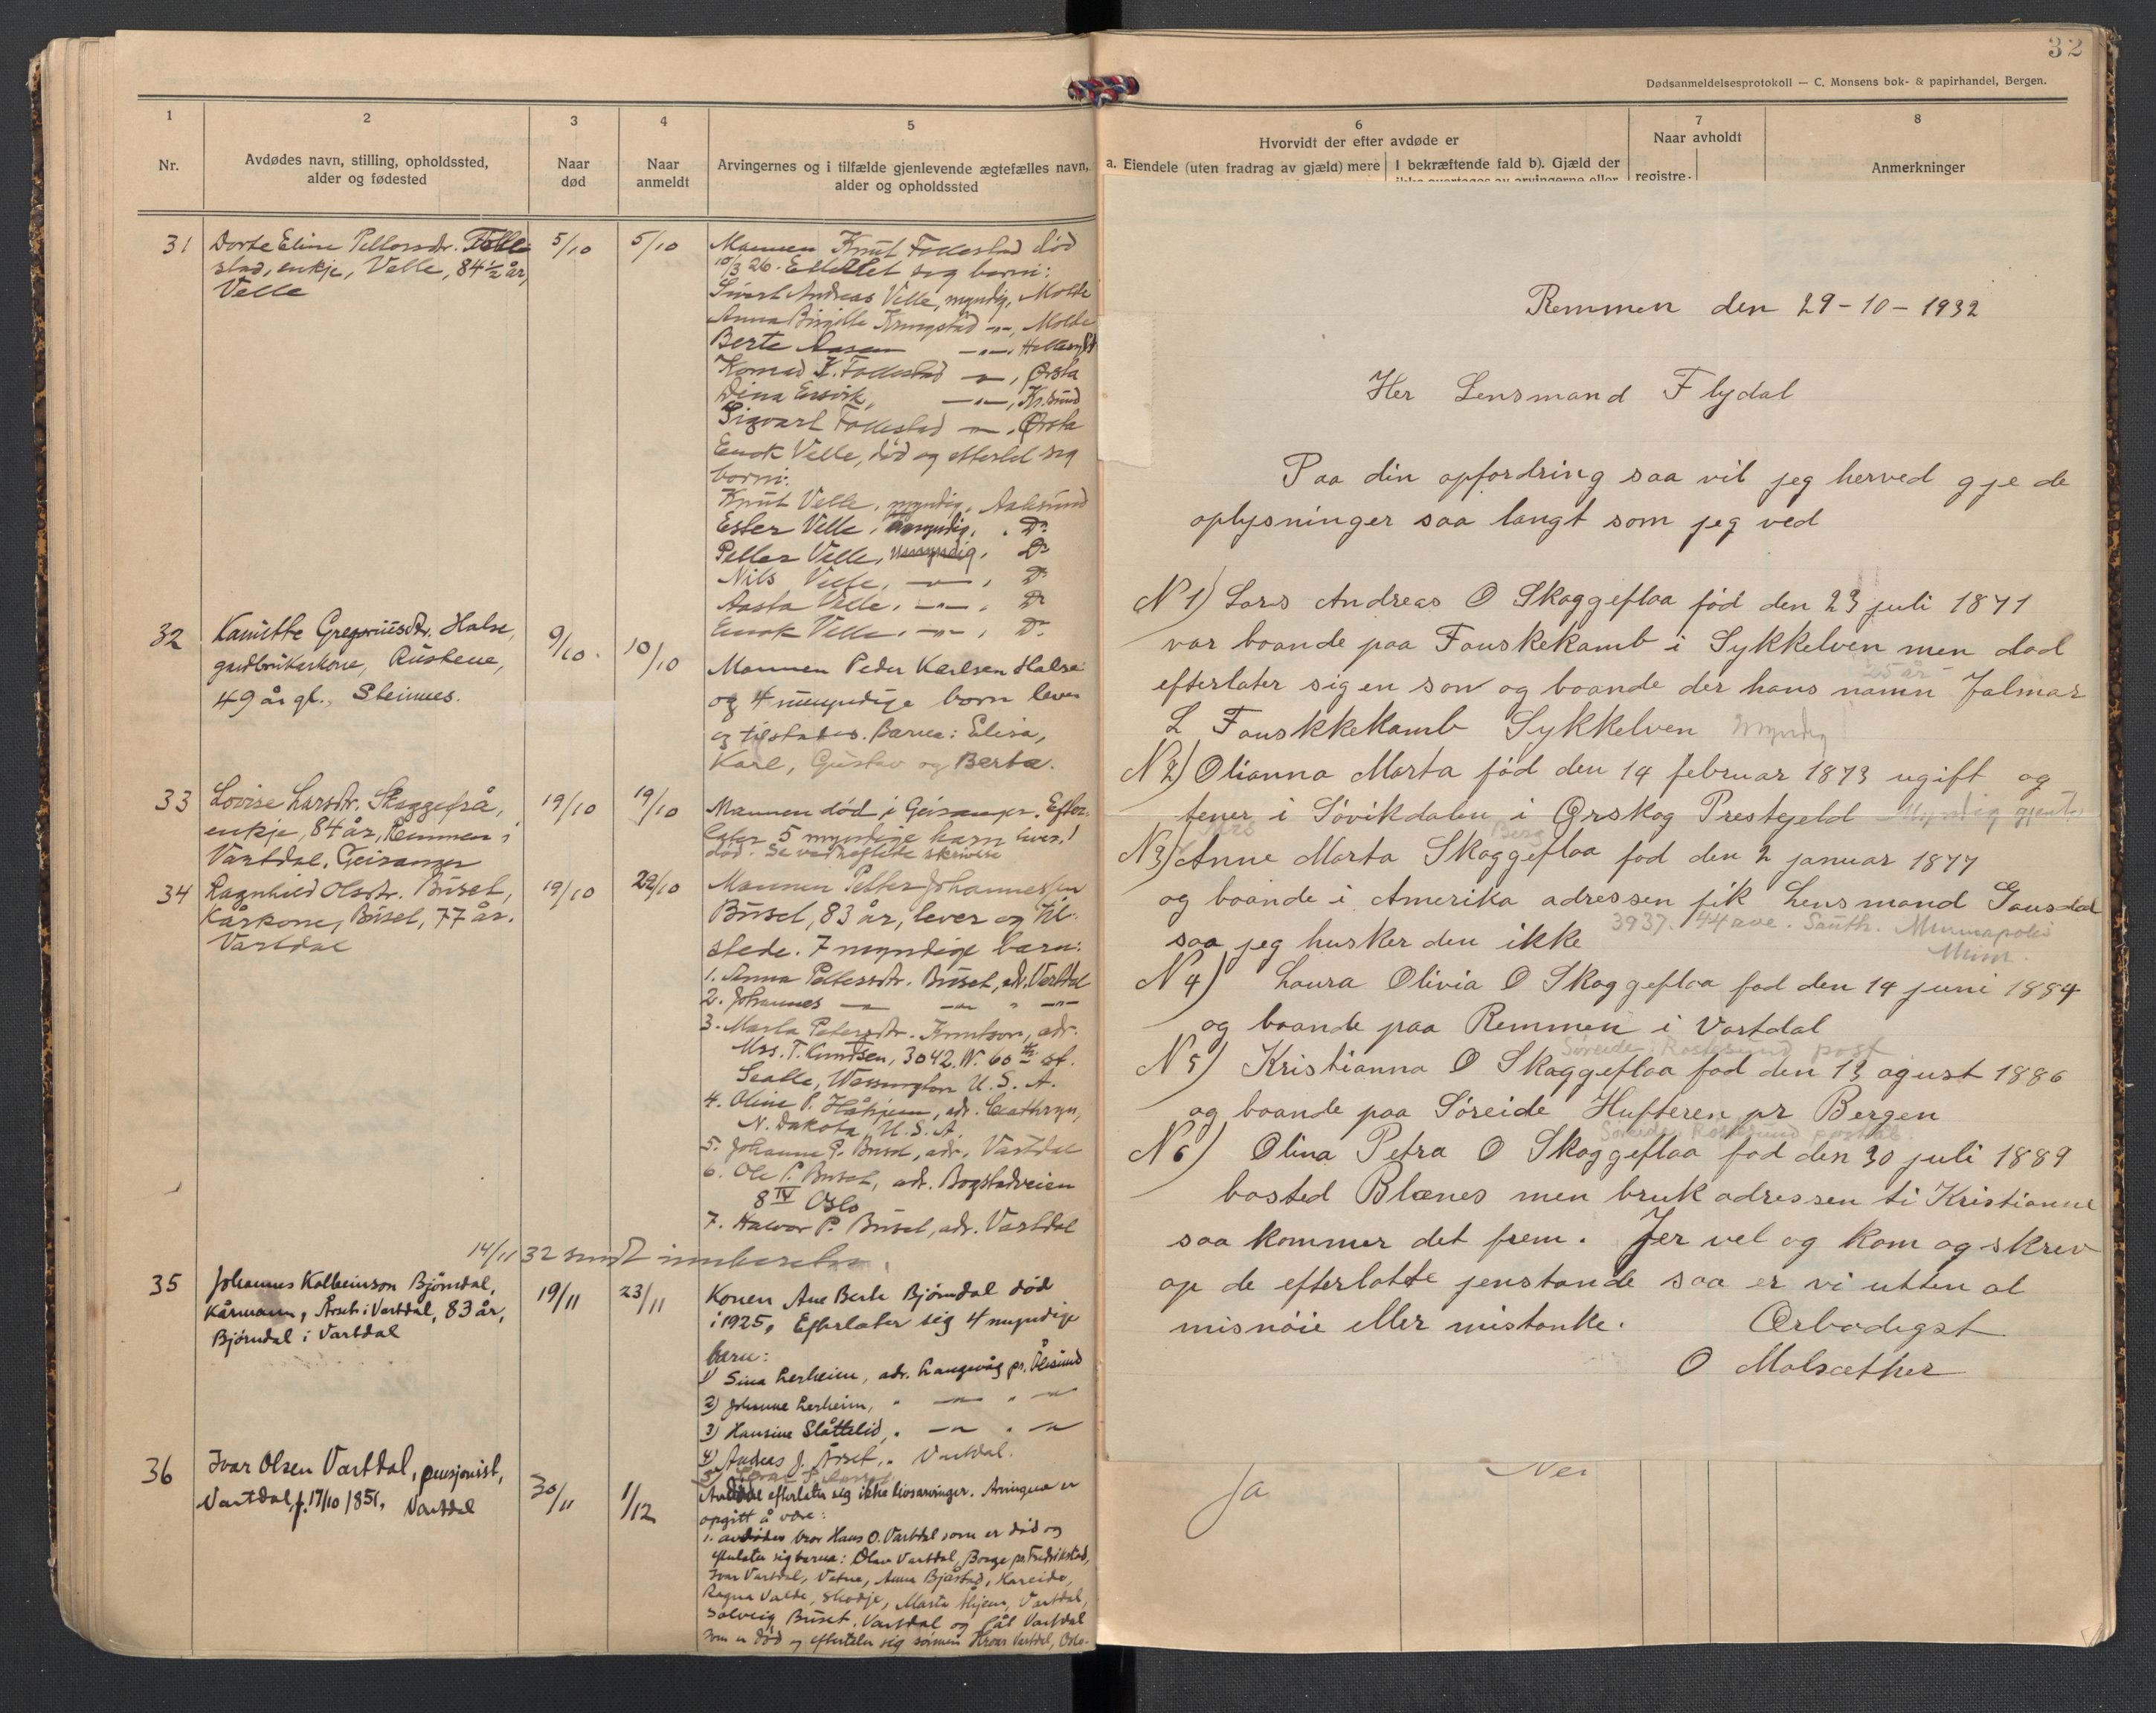 32
Dødsanmeldelsesprotokoll — C. Monsens bok- & papirhandel, Bergen.
1
Nr.
2
Avdødes navn, stilling, opholdssted,
alder og fødested
3
Naar
død
4
Naar
anmeldt
5
Arvingernes og i tilfælde gjenlevende ægtefælles navn,
alder og opholdssted
6
Hvorvidt der efter avdøde er
a. Eiendele (uten fradrag av gjæld) mere
I bekræftende fald b). Gjæld der
ikke overtages av arvingerne eller
7
Naar avholdt
registre-
8
Anmerkninger
31
Dorte Eline Pettersdr. Folke
stad, enkje, Velle, 84½ år,
Velle
5/10
5/10
Mannen Knut Folkestad død
10/3 26. Etterlet seg born:
Sivert Andreas Velle, myndig, Molde
Anna Birgitte Kringstad -"-, Molde
Berte Aasen -"-, Hellesylt
Konrad K. Folkestad -"-, Ørsta
Dina Ervik, -"-, Kr.sund
Sigvart Folkestad -"-, Ørsta
Enok Velle, død og etterlet seg
born:
Knut Velle, myndig, Aalesund
Ester Velle, umyndig, Do
Petter Velle, umyndig, Do
Nils Velle, -"-, Do
Aasta Velle, -"-, Do
Enok Velle, -"-, Do
32
Kamitte Gregoriusdr. Halse,
gardbrukarkone, Rustene,
49 år gl., Steinnes.
9/10.
10/10
Mannen Peder Karlsen Halse
og 4 umyndige born lever
og tilstades. Barna: Elisa,
Karl, Gustav og Berta.
33
Lovise Larsdr. Skaggeflå,
enkje, 84 år, Remmen i
Vartdal, Geiranger
19/10
19/10
Mannen død i Geiranger. Efter-
later 5 myndige barn lever. 1
død. Se vedheftete skrivelse
34
Ragnhild Olsdr. Buset,
Kårkone, Buset, 77 år.
Vartdal
19/10
29/10
Mannen Petter Johannessen
Buset, 83 år, lever og til-
stede. 7 myndige barn:
1. Anna Pettersdr. Buset, adr. Vartdal
2. Johannes -"- -"- " -"-
3. Marta Petersdr. Knutson, adr.
Mrs. T. Knudsen, 3042. W. 60th st.
Seatle, Wassington U. S. A.
4. Oline P. Håhjem, adr. Cathryn,
N. Dakota, U. S. A.
5. Johanne P. Buset, adr. Vartdal
6. Ole P. Buset, adr. Bogstadveien
8 IV Oslo
7. Halvor P. Buset, adr. Vartdal
14/11 32 sendt innberetn.
35
Johannes Kolbeinson Bjørndal,
Kårmann, Årset i Vartdal, 83 år,
Bjørndal i Vartdal
19/11
23/11
Konen Ane Berte Bjørndal død
i 1925. Efterlater sig 4 myndige
barn:
1) Sina Lerheim, adr. Langevåg pr. Ålesund
2) Johanne Lerheim, " -"- " -"-
3) Hansine Slåttelid, " -"- " -"-
4) Andreas J. Årset, " Vartdal.
36
Ivar Olsen Vartdal, pensjonist,
Vartdal, f. 17/10 1851, Vartdal
30/11
1/12
Avdøde efterlater seg ikke livsarvinger. Arvingene er
opgitt å være:
1. avdødes bror Hans O. Vartdal som er død og
efterlater sig barna: Olav Vartdal, Borge pr. Fredrikstad,
Ivar Vartdal, Vatne, Anna Bjåstad, Hareide,
Ragna Valde, Skodje, Marta Hjem, Vartdal,
Solveig Buset, Vartdal og Pål Vartdal
som er død og efterlater sig sønnen Hroar Vartdal, Oslo.
Remmen den 29-10-1932
Her Lensmand Flydal
Paa din opfordring saa vil jeg herved gje de
oplysninger saa langt som jeg ved
N 1) Lars Andreas O Skaggeflaa fød den 23 juli 1871
var boande paa Fauskekamb i Sykkelven men død
25 år
efterlater sig en søn og boande der hans namn Jalmar
L Fauskkekamb Sykkelven myndig
N 2) Olianna Marta fød den 14 februar 1873 ugift og
tener i Søvikdalen i Ørskog Prestejeld Myndig gjenta
Mrs Berg
N 3) Anne Marta Skaggeflaa fød den 2 januar 1877
og boande i Amerika adressen fik Lensmand Gausdal
saa jeg husker den ikke 3937. 44 ave. South. Minneapolis
Minn.
N 4) Laura Olivia O Skaggeflaa fød den 14 juni 1884
og boande paa Remmen i Vartdal
Søreide, Rostesund post
N 5) Kristianna O Skaggeflaa fød den 13 agust 1886
og boande paa Søreide Hufteren pr Bergen
Søreide, Rostesund postst.
N 6) Olina Petra O Skaggeflaa fød den 30 juli 1889
bosted Blænes men bruk adressen ti Kristianne
saa kommer det frem. Jer vel og kom og skrev
op de efterlatte jenstande saa er vi utten at
misnøie eller mistanke. Ærbødigst
O Malsæther
Ja
Nei